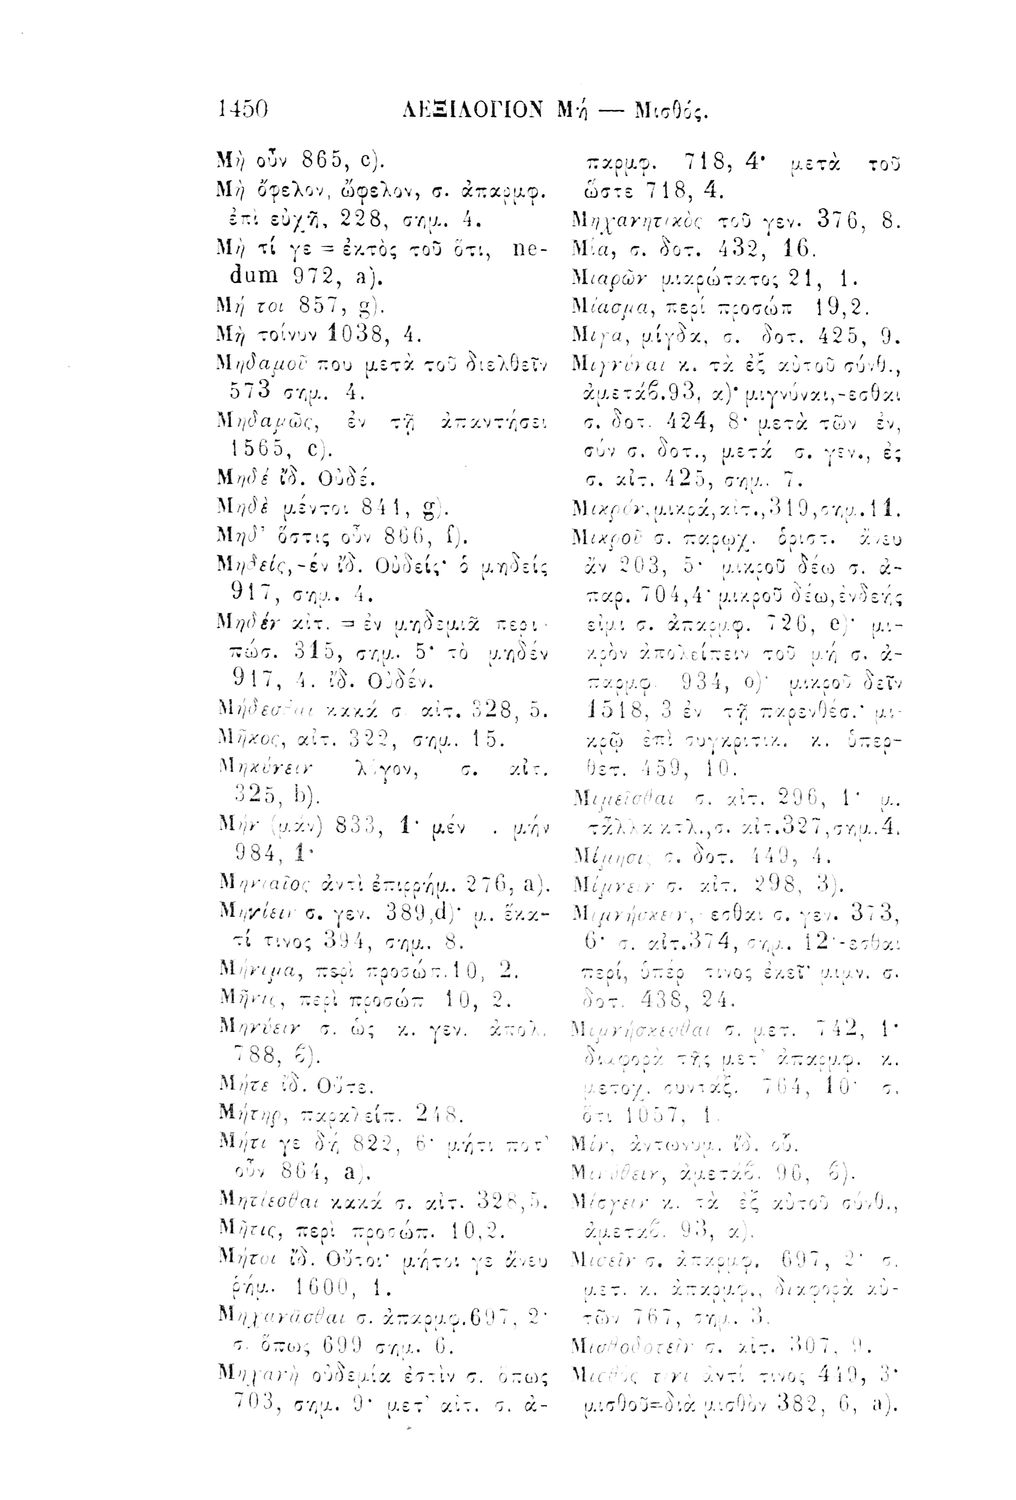 1450 ΛΕΞΙΛΟΓΙΟΝ Μή — Μισθός.
Μὴ οὖν 865, c).
Μὴ ὄφελον, ὤφελον, σ. ἀπαρμφ.
ἐπὶ εὐχῇ, 228, σημ. 4.
Μὴ τί γε = ἐκτὸς τοῦ ὅτι, ne-
dum 972, a).
Μή τοι 857, g).
Μὴ τοίνυν 1038, 4.
Μηδαμοῦ που μετὰ τοῦ διελθεῖν
573 σημ. 4.
Μηδαμῶς, ἐν τῇ ἀπαντήσει
1565, c).
Μηδέ ἴδ. Οὐδέ.
Μηδὲ μέντοι 841, g).
Μηδ' ὅστις οὖν 866, f).
Μηδείς,-έν ἴδ. Οὐδείς· ὁ μηδείς
917, σημ. 4.
Μηδέν αἰτ. = ἐν μηδεμιᾷ περι-
πτώσ. 315, σημ. 5· τὸ μηδέν
917, 4. ἴδ. Οὐδέν.
Μήδεσθαι κακά σ. αἰτ. 328, 5.
Μῆκος, αἰτ. 322, σημ. 15.
Μηκύνειν λόγον, σ. αἰτ.
325, b).
Μήν (μάν) 833, 1· μέν . μήν
984, 1·
Μηνιαῖος ἀντὶ ἐπιρρήμ. 276, a).
Μηνίειν σ. γεν. 389,d)· μ. ἕκα-
τί τινος 394, σημ. 8.
Μήνιμα, περὶ προσώπ.10, 2.
Μῆνις, περὶ προσώπ 10, 2.
Μηνύειν σ. ὡς κ. γεν. ἀπολ.
788, β).
Μήτε ἴδ. Οὔτε.
Μήτηρ, παραλείπ. 248.
Μήτι γε δή 822, 6· μήτι ποτ'
οὖν 864, a).
Μητίεσθαι κακά σ. αἰτ. 328,5.
Μῆτις, περὶ προσώπ. 10,2.
Μήτοι ἴδ. Οὔτοι· μήτοι γε ἄνευ
ῥήμ. 1600, 1.
Μηχανᾶσθαι σ. ἀπαρμφ.697, 2·
σ. ὅπως 699 σημ. 6.
Μηχανὴ οὐδεμία ἐστὶν σ. ὅπως
703, σημ. 9· μετ' αἰτ. σ. ἀ-
παρμφ. 718, 4· μετὰ τοῦ
ὥστε 718, 4.
Μηχανητικὸς τοῦ γεν. 376, 8.
Μία, σ. δοτ. 432, 16.
Μιαρῶν μιαρώτατος 21, 1.
Μίασμα, περί προσώπ 19,2.
Μίγα, μίγδα, σ. δοτ. 425, 9.
Μιγνύναι κ. τὰ ἐξ αὐτοῦ σύνθ.,
ἀμετάβ.93, α)· μιγνύναι,-εσθαι
σ. δοτ. 424, 8· μετὰ τῶν ἐν,
σύν σ. δοτ., μετά σ. γεν., ἐς
σ. αἰτ. 425, σημ. 7.
Μικρόν,μικρά,αἰτ.,319,σημ.11.
Μικροῦ σ. παρῳχ. ὁριστ. ἄνευ
ἄν 203, 5· μικροῦ δέω σ. ἀ-
παρ. 704,4· μικροῦ δέω,ἐνδεής
εἰμι σ. ἀπαρμφ. 726, e)· μι-
κρὸν ἀπολείπειν τοῦ μή σ. ἀ-
παρμφ. 934, o)· μικροῦ δεῖν
1518, 3 ἐν τῇ παρενθέσ.· μι-
κρῷ ἐπὶ συγκριτικ. κ. ὑπερ-
θετ. 459, 10.
Μιμεῖσθαι σ. αἰτ. 296, 1· μ.
τἆλλα κτλ.,σ. αἰτ.327,σημ.4.
Μίμησις σ. δοτ. 449, 4.
Μίμνειν σ. αἰτ. 298, 3).
Μιμνήσκειν,-εσθαι σ. γεν. 373,
6· σ. αἰτ.374, σημ. 12·-εσθαι
περί, ὑπέρ τινος ἐκεῖ· μιμν. σ.
δοτ. 438, 24.
Μιμνήσκεσθαι σ. μετ. 742, 1·
διαφορὰ τῆς μετ' ἀπαρμφ. κ.
μετοχ. συντάξ. 764, 10· σ.
ὅτι 1057, 1.
Μίν, ἀντωνυμ. ἴδ. οὗ.
Μινύθειν, ἀμετάβ. 96, β).
Μίσγειν κ. τὰ ἐξ αὐτοῦ σύνθ.,
ἀμεταβ. 93, α).
Μισεῖν σ. ἀπαρμφ. 697, 2· σ.
μετ. κ. ἀπαρμφ., διαφορὰ αὐ-
τῶν 767, σημ. 3.
Μισθοδοτεῖν σ. αἰτ. 307, 9.
Μισθός τινι ἀντί τινος 449, 3·
μισθοῦ=διὰ μισθὸν 382, 6, a).